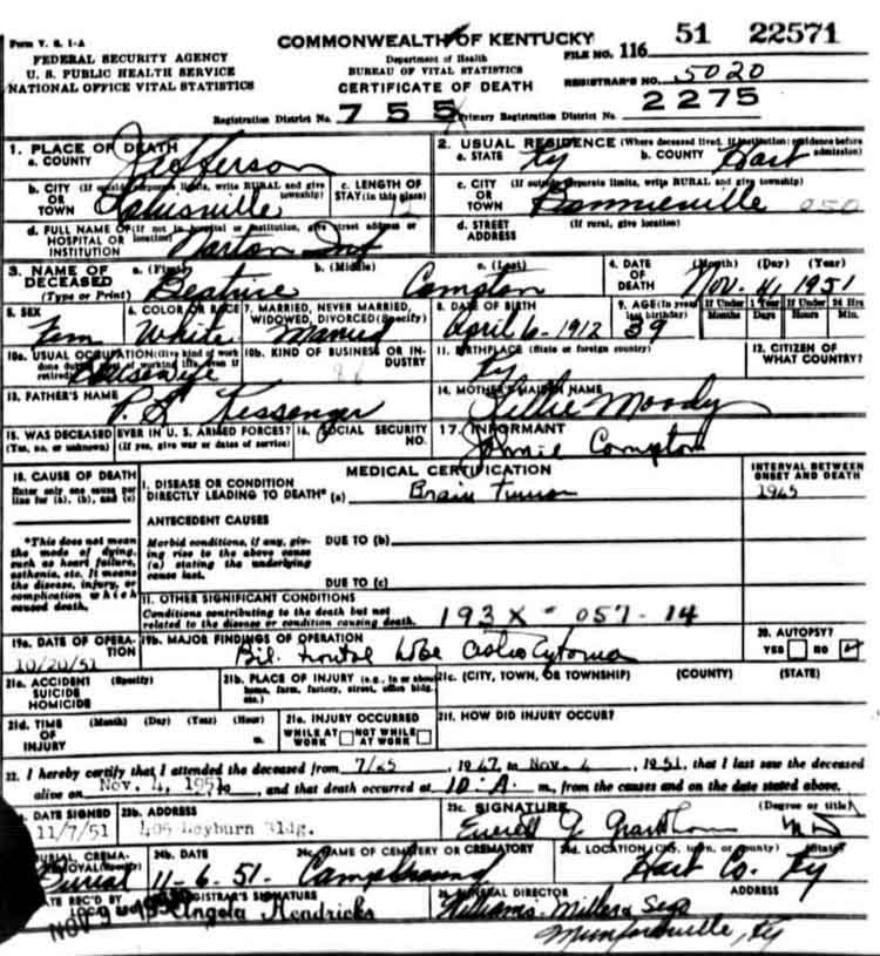 Form V. S. 1-A
FEDERAL SECURITY AGENCY
U. S. PUBLIC HEALTH SERVICE
NATIONAL OFFICE VITAL STATISTICS
COMMONWEALTH OF KENTUCKY
Department of Health
BUREAU OF VITAL STATISTICS
CERTIFICATE OF DEATH
FILE NO. 116 51 22571
REGISTRAR'S NO. 5020
Registration District No. 755 Primary Registration District No. 2275
1. PLACE OF DEATH
a. COUNTY Jefferson
b. CITY (If outside corporate limits, write RURAL and give township) OR TOWN Louisville
c. LENGTH OF STAY (in this place) 12
d. FULL NAME OF (If not in hospital or institution, give street address or location) HOSPITAL OR INSTITUTION Norton Inf
2. USUAL RESIDENCE (Where deceased lived. If institution: residence before admission)
a. STATE Ky b. COUNTY Hart
c. CITY (If outside corporate limits, write RURAL and give township) OR TOWN Bonnieville 050
d. STREET ADDRESS (If rural, give location)
3. NAME OF DECEASED (Type or Print) a. (First) Beatrice b. (Middle) c. (Last) Compton
4. DATE OF DEATH (Month) (Day) (Year) Nov. 4, 1951
5. SEX Fem
6. COLOR OR RACE White
7. MARRIED, NEVER MARRIED, WIDOWED, DIVORCED (Specify) Married
8. DATE OF BIRTH April 6-1912
9. AGE (In years last birthday) 39 If Under 1 Year Months Days If Under 24 Hrs Hours Min.
10a. USUAL OCCUPATION (Give kind of work done during most of working life, even if retired) Housewife
10b. KIND OF BUSINESS OR INDUSTRY
11. BIRTHPLACE (State or foreign country) Ky
12. CITIZEN OF WHAT COUNTRY?
13. FATHER'S NAME P. L. Kessenger
14. MOTHER'S MAIDEN NAME Lillie Moody
15. WAS DECEASED EVER IN U. S. ARMED FORCES? (Yes, no, or unknown) (If yes, give war or dates of service)
16. SOCIAL SECURITY NO.
17. INFORMANT Johnie Compton
18. CAUSE OF DEATH
Enter only one cause per line for (a), (b), and (c)
*This does not mean the mode of dying, such as heart failure, asthenia, etc. It means the disease, injury, or complication which caused death.
MEDICAL CERTIFICATION
I. DISEASE OR CONDITION DIRECTLY LEADING TO DEATH* (a) Brain Tumor
INTERVAL BETWEEN ONSET AND DEATH
1945
ANTECEDENT CAUSES
Morbid conditions, if any, giving rise to the above cause (a) stating the underlying cause last.
DUE TO (b)
DUE TO (c)
11. OTHER SIGNIFICANT CONDITIONS
Conditions contributing to the death but not related to the disease or condition causing death. 193X - 057-14
19a. DATE OF OPERATION 10/20/51
19b. MAJOR FINDINGS OF OPERATION Bil. frontal lobe Astrocytoma
20. AUTOPSY? YES NO
21a. ACCIDENT SUICIDE HOMICIDE (Specify)
21b. PLACE OF INJURY (e.g., in or about home, farm, factory, street, office bldg. etc.)
21c. (CITY, TOWN, OR TOWNSHIP) (COUNTY) (STATE)
21d. TIME OF INJURY (Month) (Day) (Year) (Hour) m.
21e. INJURY OCCURRED WHILE AT WORK NOT WHILE AT WORK
21f. HOW DID INJURY OCCUR?
22. I hereby certify that I attended the deceased from 7/25, 1947, to Nov. 4, 1951, that I last saw the deceased
alive on Nov. 4, 1951, and that death occurred at 10:A. m., from the causes and on the date stated above.
DATE SIGNED 11/7/51
23b. ADDRESS Heyburn Bldg.
23c. SIGNATURE (Degree or title) Everett G Grantham MD
BURIAL, CREMA- Burial
24b. DATE 11-6-51.
24c. NAME OF CEMETERY OR CREMATORY Campground
24d. LOCATION (City, town, or county) (State) Hart Co. Ky
DATE REC'D BY NOV 9
REGISTRAR'S SIGNATURE Angela Hendricks
25. FUNERAL DIRECTOR ADDRESS
Munfordville, Ky